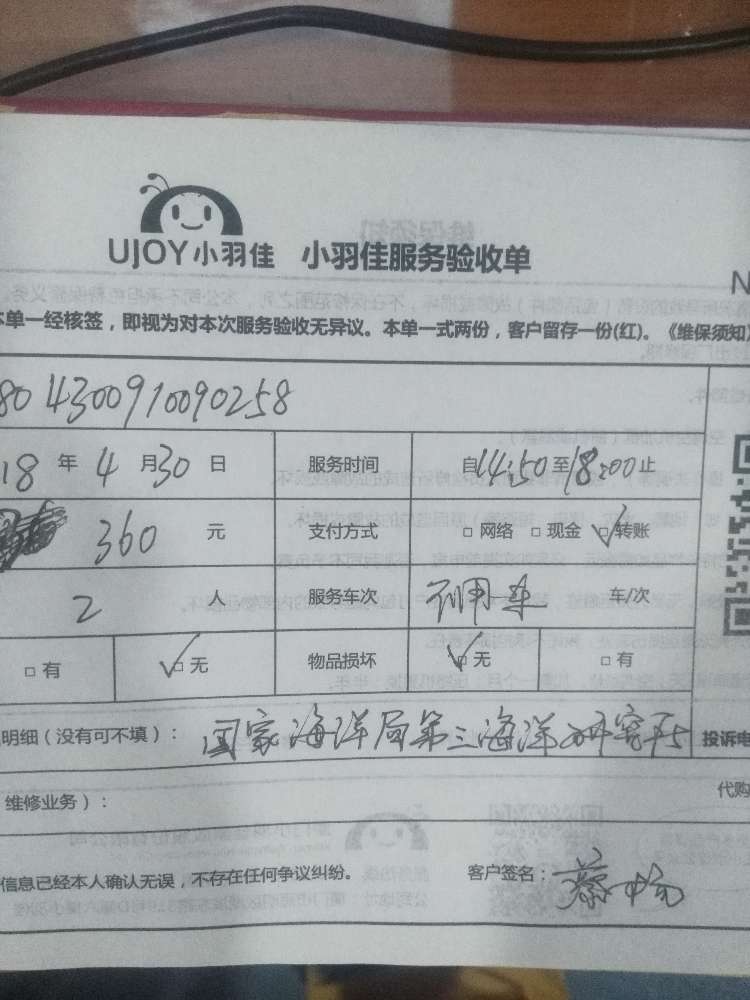 UJOY小羽佳 小羽佳服务验收单
N
本单一经核签，即视为对本次服务验收无异议。本单一式两份，客户留存一份(红)。《维保须知》
804300910090258
18年4月30日 服务时间 自14:50至18:00止
360元 支付方式 □网络 □现金 ☑转账
2人 服务车次 不用车 车/次
□有 ☑无 物品损坏 ☑无 □有
明细（没有可不填）： 国家海洋局第三海洋研究所 投诉电
维修业务）： 代购
信息已经本人确认无误，不存在任何争议纠纷。 客户签名：